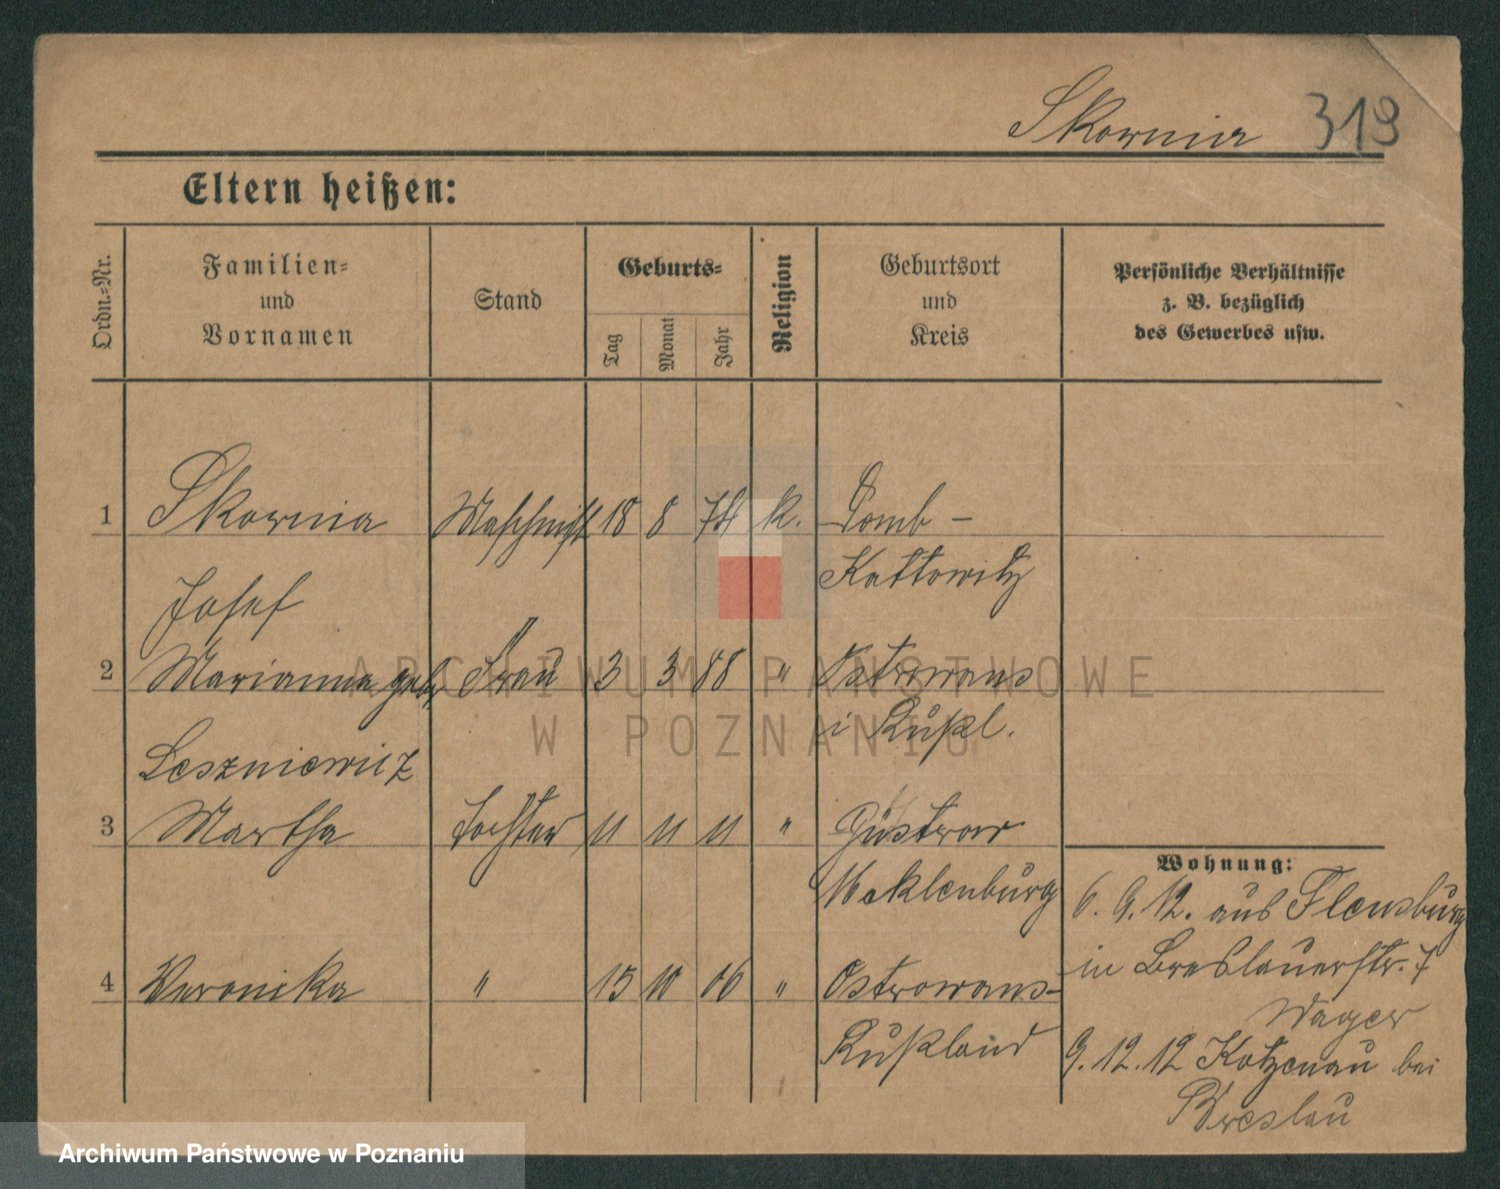 Skownia 319
Eltern heißen:
Ordn.-Nr.
Familien-
und
Vornamen
Stand
Geburts-
Tag
Monat
Jahr
Religion
Geburtsort
und
Kreis
Persönliche Verhältnisse
z. B. bezüglich
des Gewerbes usw.
1 Skownia Maschinist 18 8 74 K. Domb -
Kattowitz
Josef
2 Marianna geb. Frau 3 3 88 " Ostrowans
i Rußl.
Leszniewicz
3 Martha Tochter 11 11 11 " Güstrow
Mecklenburg
4 Veronika " 15 10 06 " Ostrowans-
Rußland
Wohnung:
6. 9. 12. aus Flensburg
in Breslauerstr. 7
Wager
9. 12. 12 Kotzenau bei
Breslau
ARCHIWUM PAŃSTWOWE
W POZNANIU
Archiwum Państwowe w Poznaniu